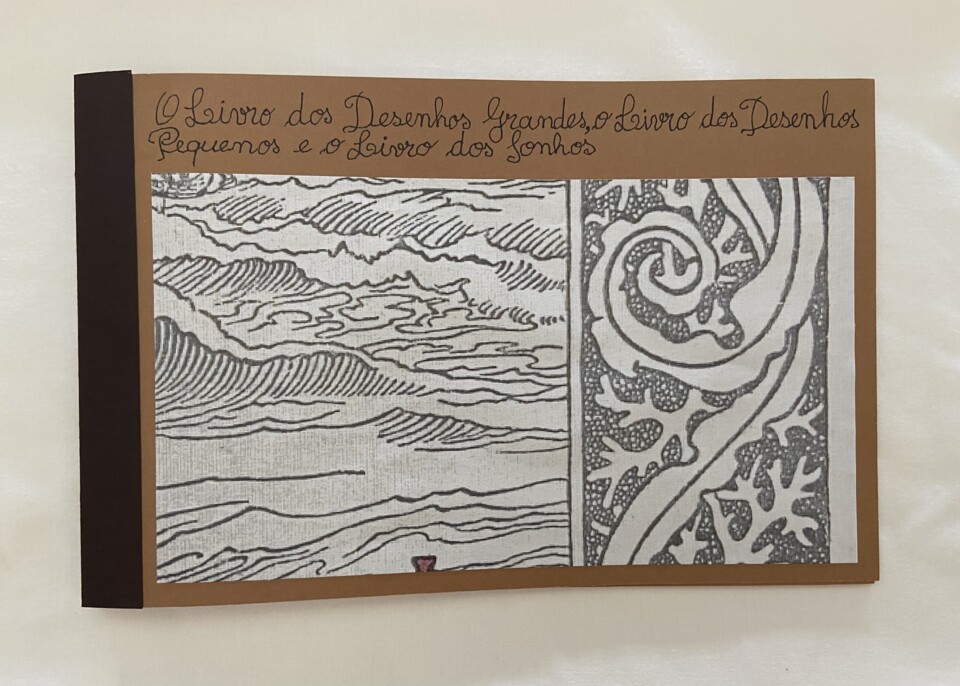 O Livro dos Desenhos Grandes, o Livro dos Desenhos
Pequenos e o Livro dos Sonhos